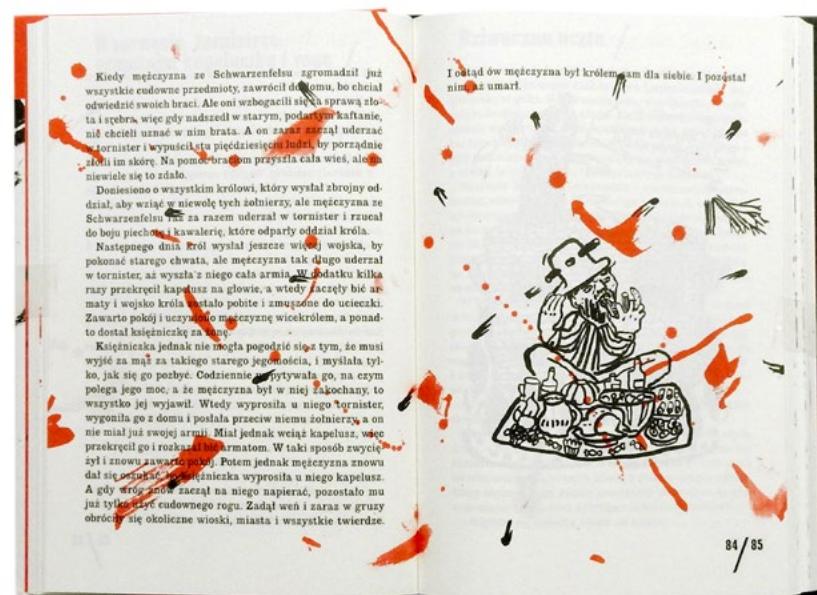 Kiedy mężczyzna ze Schwarzenfelsu zgromadził już
wszystkie cudowne przedmioty, zawrócił do domu, bo chciał
odwiedzić swoich braci. Ale oni wzbogacili się za sprawą zło-
ta i srebra, więc gdy nadszedł w starym, podartym kaftanie,
nie chcieli uznać w nim brata. A on zaraz zaczął uderzać
w tornister i wypuścił stu pięćdziesięciu ludzi, by porządnie
złoili im skórę. Na pomoc braciom przyszła cała wieś, ale na
niewiele się to zdało.
Doniesiono o wszystkim królowi, który wysłał zbrojny od-
dział, aby wziąć w niewolę tych żołnierzy, ale mężczyzna ze
Schwarzenfelsu raz za razem uderzał w tornister i rzucał
do boju piechotę i kawalerię, które odparły oddział króla.
Następnego dnia król wysłał jeszcze więcej wojska, by
pokonać starego chwata, ale mężczyzna tak długo uderzał
w tornister, aż wyszła z niego cała armia. W dodatku kilka
razy przekręcił kapelusz na głowie, a wtedy zaczęły bić ar-
maty i wojsko króla zostało pobite i zmuszone do ucieczki.
Zawarto pokój i uczyniono mężczyznę wicekrólem, a ponad-
to dostał księżniczkę za żonę.
Księżniczka jednak nie mogła pogodzić się z tym, że musi
wyjść za mąż za takiego starego jegomościa, i myślała tyl-
ko, jak się go pozbyć. Codziennie wypytywała go, na czym
polega jego moc, a że mężczyzna był w niej zakochany, to
wszystko jej wyjawił. Wtedy wyprosiła u niego tornister,
wygoniła go z domu i posłała przeciw niemu żołnierzy, a on
nie miał już swojej armii. Miał jednak wciąż kapelusz, więc
przekręcił go i rozkazał bić armatom. W taki sposób zwycię-
żył i znowu zawarto pokój. Potem jednak mężczyzna znowu
dał się oszukać, bo księżniczka wyprosiła u niego kapelusz.
A gdy wróg znów zaczął na niego napierać, pozostało mu
już tylko użyć cudownego rogu. Zadął weń i zaraz w gruzy
obróciły się okoliczne wioski, miasta i wszystkie twierdze.
I odtąd ów mężczyzna był królem sam dla siebie. I pozostał
nim, aż umarł.
84/85